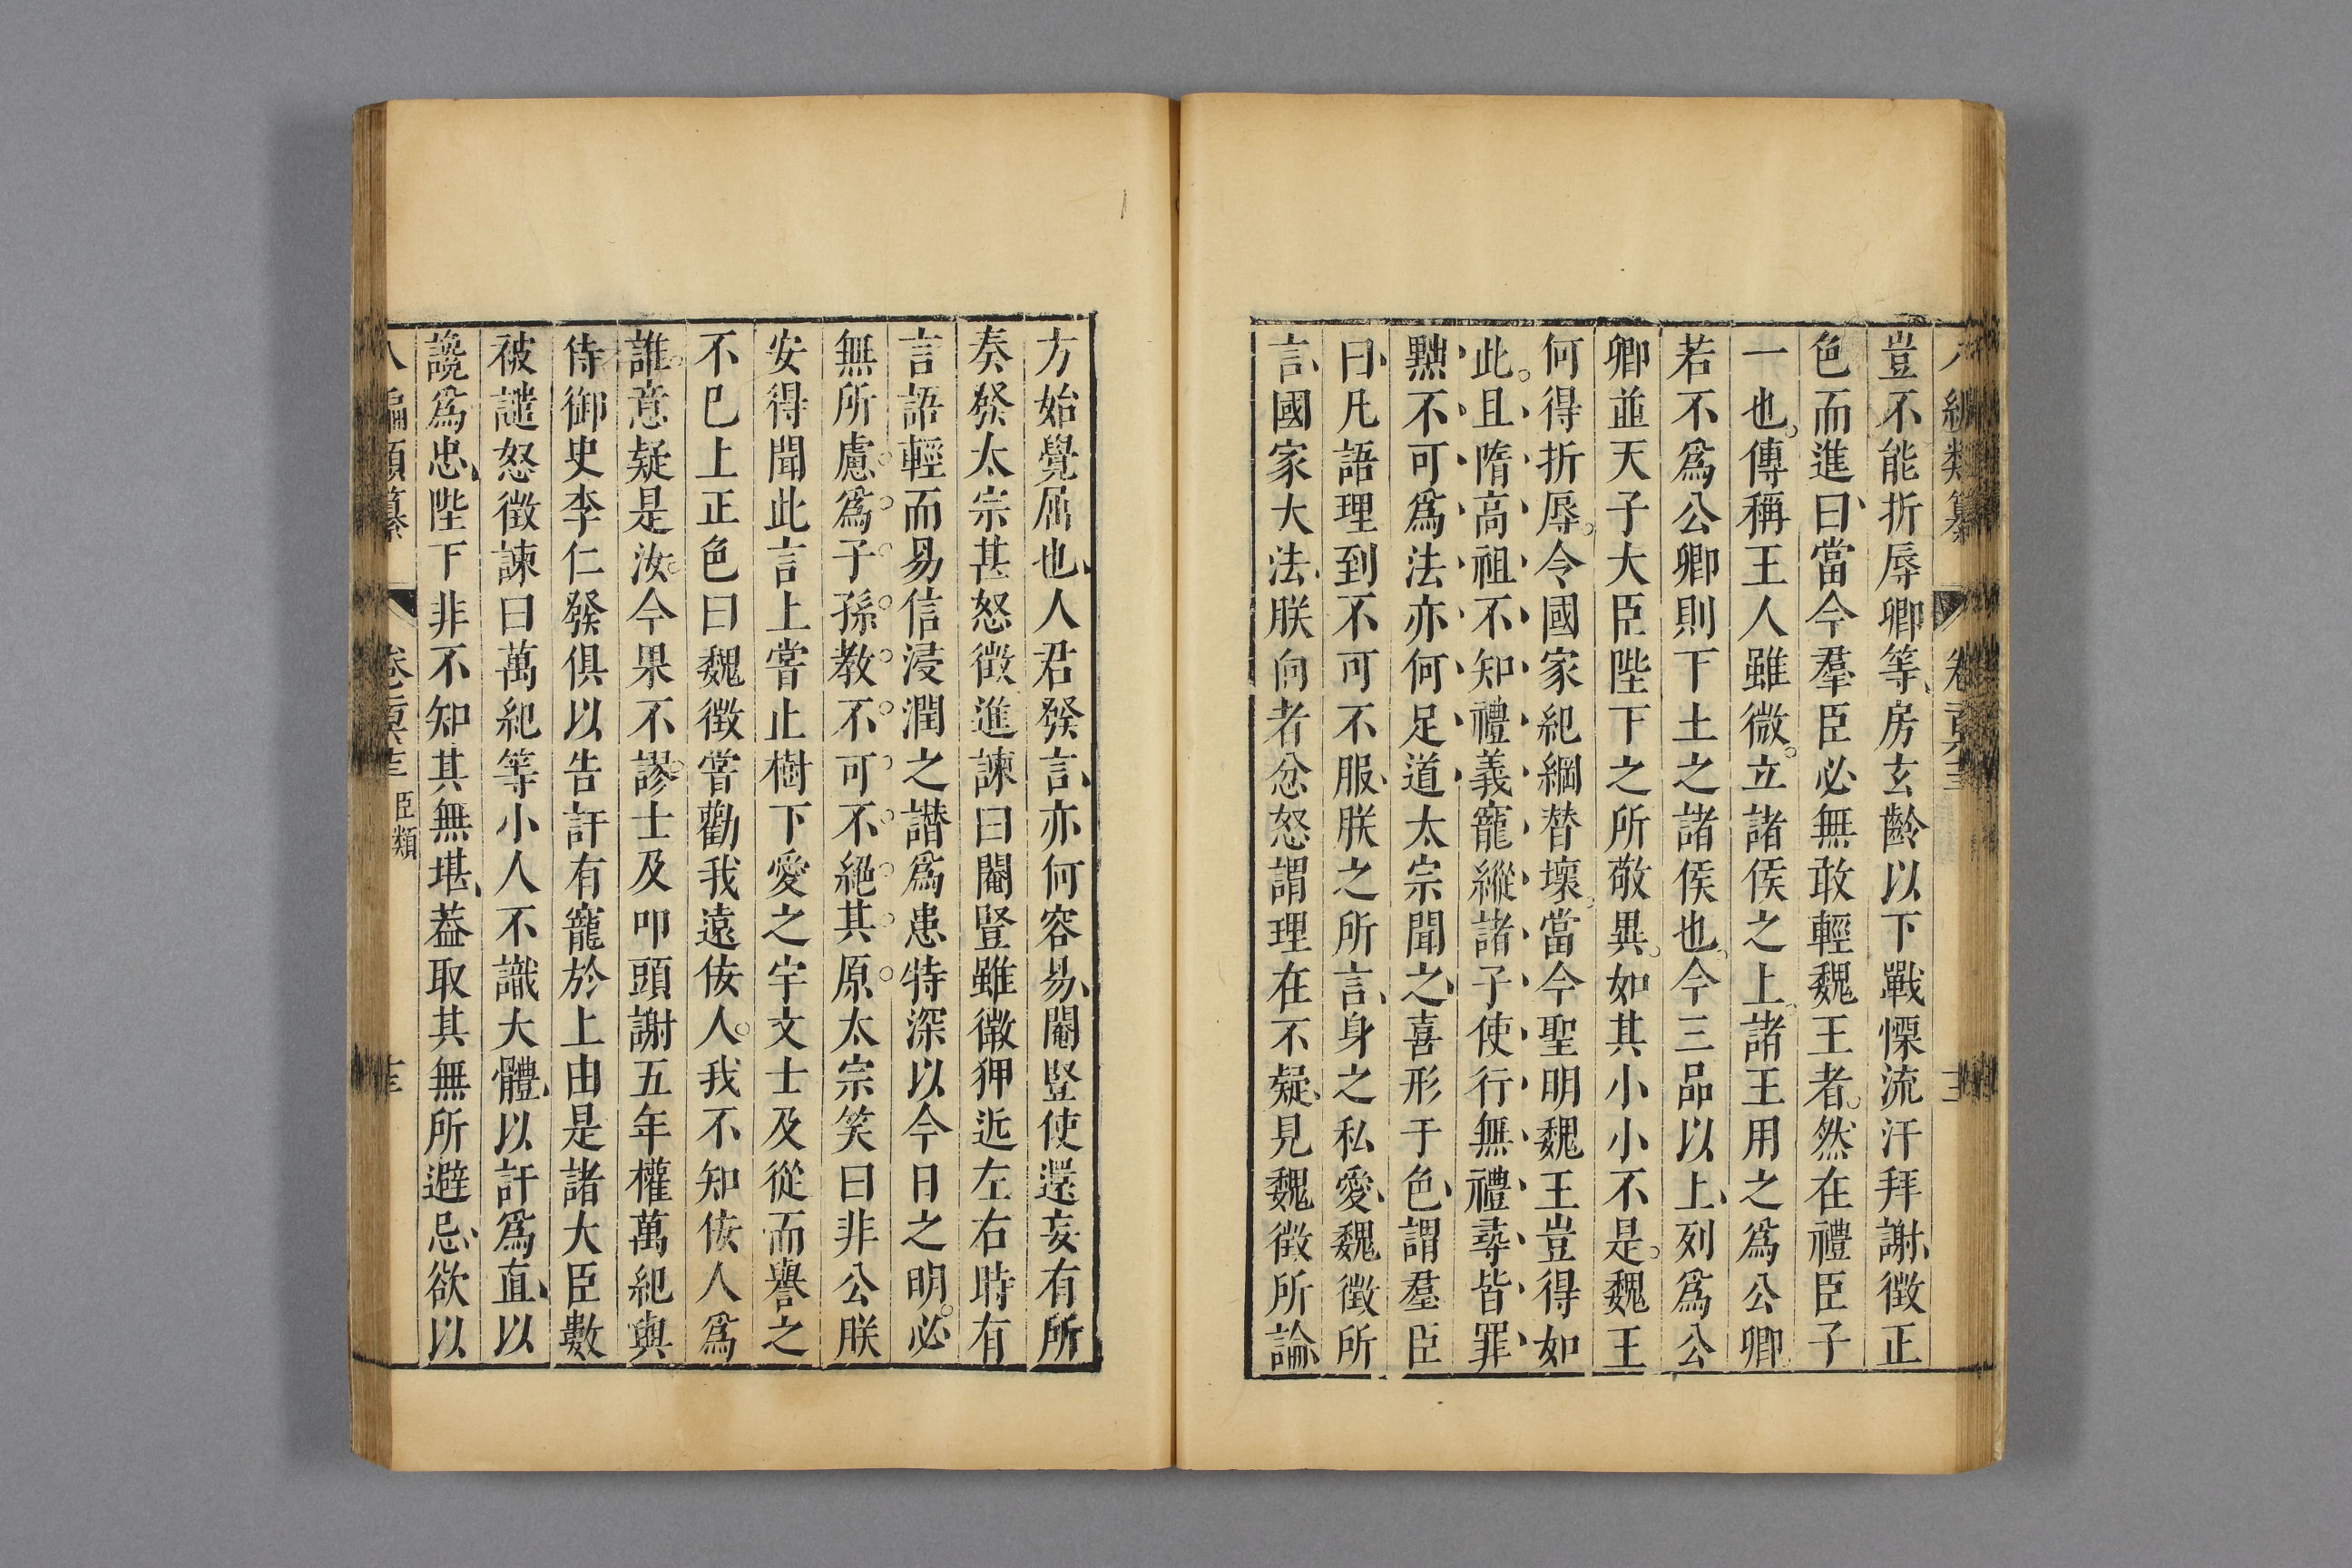 豈不能折辱卿等房玄齡以下戰慄流汗拜謝徵正
色而進曰當今羣臣必無敢輕魏王者然在禮臣子
一也傳稱王人雖微立諸侯之上諸王用之為公卿
若不為公卿則下土之諸侯也今三品以上列為公
卿並天子大臣陛下之所敬異如其小小不是魏王
何得折辱令國家紀綱替壞當今聖明魏王豈得如
此且隋高祖不知禮義寵縱諸子使行無禮尋皆罪
黜不可為法亦何足道太宗聞之喜形于色謂羣臣
曰凡語理到不可不服朕之所言身之私愛魏徵所
言國家大法朕向者忿怒謂理在不疑見魏徵所論
方始覺屈也人君發言亦何容易閹豎使還妄有所
奏發太宗甚怒徵進諫曰閹豎雖微狎近左右時有
言語輕而易信浸潤之譖為患特深以今日之明必
無所慮為子孫教不可不絕其原太宗笑曰非公朕
安得聞此言上嘗止樹下愛之宇文士及從而譽之
不已上正色曰魏徵嘗勸我遠佞人我不知佞人為
誰意疑是汝今果不謬士及叩頭謝五年權萬紀與
侍御史李仁發俱以告訐有寵於上由是諸大臣數
被譴怒徵諫曰萬紀等小人不識大體以訐為直以
讒為忠陛下非不知其無堪葢取其無所避忌欲以
臣類